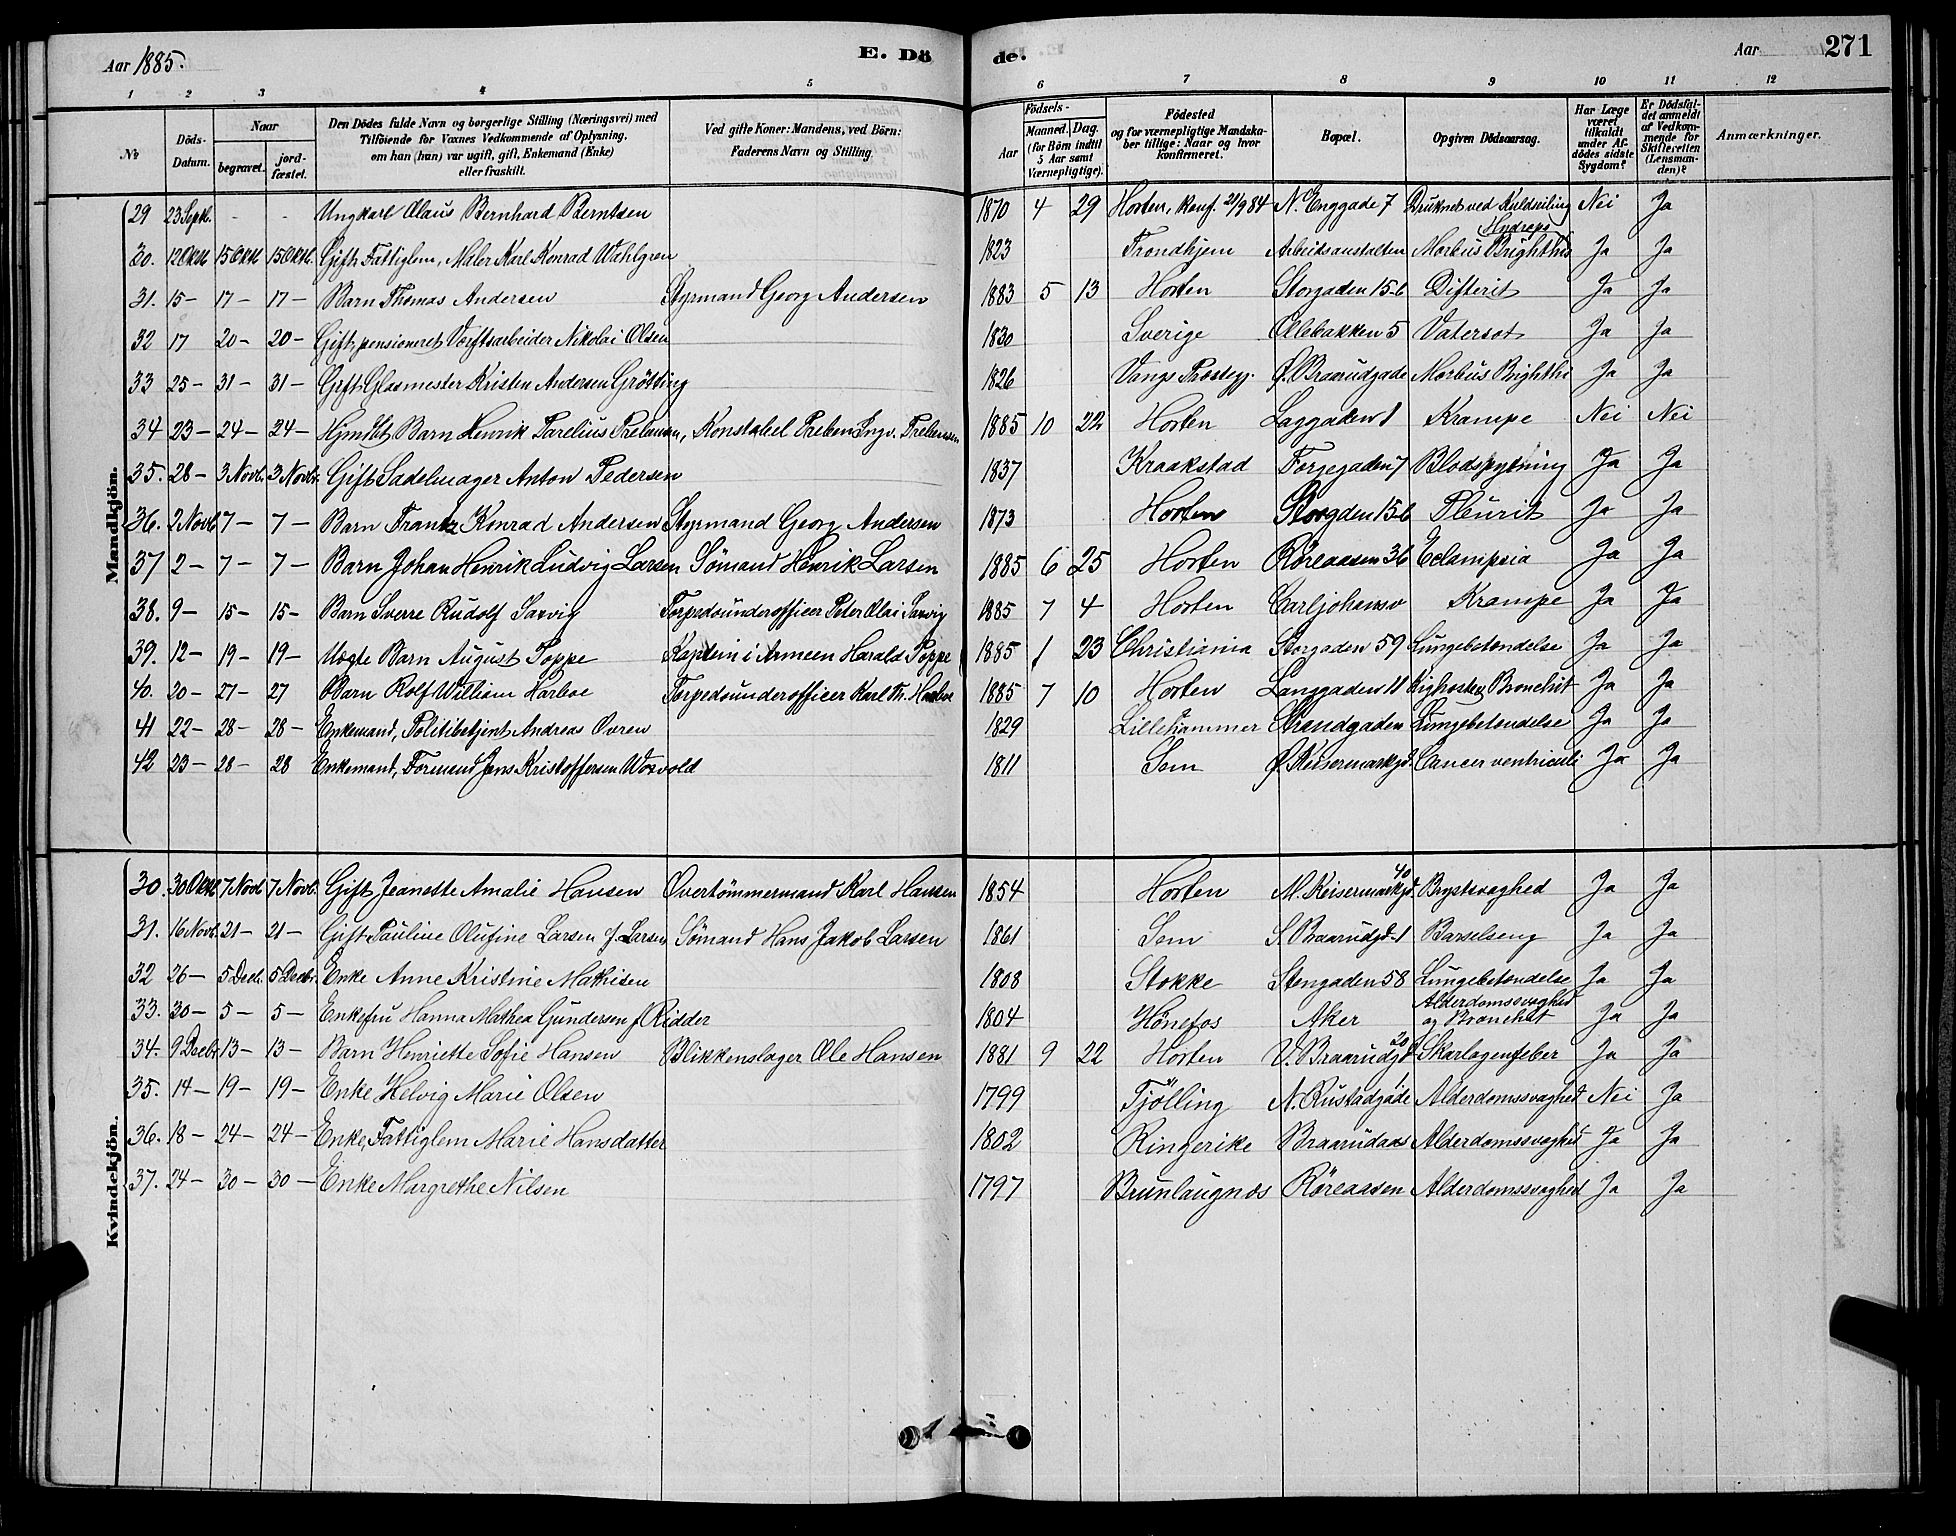 Aar 1885.
E. Dö
de.
Aar
271
1 2 3 4 5 6 7 8 9 10 11 12
№
Döds-Datum.
Naar
begravet.
jord-fæstet.
Den Dödes fulde Navn og borgerlige Stilling (Næringsvei) med
Tilföiende for Voxnes Vedkommende af Oplysning,
om han (hun) var ugift, gift, Enkemand (Enke)
eller fraskilt.
Ved gifte Koner: Mandens, ved Börn:
Faderens Navn og Stilling.
Födsels-
Aar
Maaned. Dag.
(for Börn indtil
5 Aar samt
Værnepligtige).
Födested
og for værnepligtige Mandska-
ber tillige: Naar og hvor
konfirmeret.
Bopæl.
Opgiven Dödsaarsag.
Har Læge
været
tilkaldt
under Af-
dödes sidste
Sygdom?
Er Dödsfal-
det anmeldt
af Vedkom-
mende for
Skifteretten
(Lensman-
den)?
Anmærkninger.
Mandkjön.
29 23 Septb. - - Ungkarl Olaus Bernhard Berntsen 1870 4 29 Horten, konf. 21/9 84 N. Enggade 7 Druknet ved Kuldseiling Nei Ja
30. 12 Oktb. 15 Oktb. 15 Oktb. Gift Fattiglem, Maler Karl Konrad Wahlgren 1823 Trondhjem Arbeidsanstalten Morbus Brighthii Hydrops Ja Ja
31. 15 - 17 - 17 - Barn Thomas Andersen Styrmand Georg Andersen 1883 5 13 Horten Storgaden 15-b Difterit Ja Ja
32 17 20 - 20 - Gift pensioneret Værftsarbeider Nikolai Olsen 1830 Sverige Ollebakken 5 Vatersot Ja Ja
33 25 - 31 - 31 - Gift Glasmester Kristen Andersen Grötting 1826 Vangs Prestegj. Ø. Braarudgade Morbus Brighthii Ja Ja
34 23 - 24 - 24 - Hjmdbt Barn Henrik Parelius Prebensen, Konstabel Preben Ingv. Prebensen 1885 10 22 Horten Langgaden 1 Krampe Nei Nei
35. 28 - 3 Novb. 3 Novbr. Gift Sadelmager Anton Pedersen 1837 Kraakstad Torvegaden 7 Blodspytning Ja Ja
36. 2 Novb. 7 - 7 - Barn Frantz Konrad Andersen Styrmand Georg Andersen 1873 Horten Storgden 15-b Pleurit Ja Ja
37 2 - 7 - 7 - Barn Johan Henrik Ludvig Larsen Sömand Henrik Larsen 1885 6 25 Horten Röreaasen 36 Eclampsia Ja Ja
38. 9 - 15 - 15 - Barn Sverre Rudolf Sarvig Torpedounderofficer Peter Olai Sarvig 1885 7 4 Horten Carljohansv Krampe Ja Ja
39. 12 - 19 - 19 - Uægte Barn August Poppe Kaptein i Armeen Harald Poppe 1885 1 23 Christiania Storgaden 59 Lungebetendelse Ja Ja
40. 20 - 27 - 27 Barn Rolf William Harboe Torpedounderofficer Karl Th. Harboe 1885 7 10 Horten Langgaden 11 Kighoste, Bronchit Ja Ja
41 22 - 28 - 28 - Enkemand, Politibetjent Andreas Ovren 1829 Lillehammer Strandgaden Lungebetendelse Ja Ja
42 23 - 28 - 28 Enkemand, Formand Jens Kristoffersen Worvold 1811 Sem Ø. Keisermarkgd. Cancer ventriculi Ja Ja
Kvindekjön.
30. 30 Oktb. 7 Novb. 7 Novb. Gift Jeanette Amalie Hansen Overtömmermand Karl Hansen 1854 Horten M. Keisermarkgd. 40 Brystsvaghed Ja Ja
31. 16 Novb. 21 - 21 - Gift Pauline Olufine Larsen f. Larsen Sömand Hans Jakob Larsen 1861 Sem S. Braarudgd. 1 Barselseng Ja Ja
32 26 - 5 Decb. 5 Decbr. Enke Anne Kristine Mathisen 1808 Stokke Storgaden 58 Lungebetendelse Ja Ja
33. 30 - 5 - 5 - Enkefru Hanna Mathea Gundersen f Ridder 1804 Hönefos Aker Alderdomssvaghed og Bronchit Ja Ja
34. 9 Decbr 13 - 13 - Barn Henriette Sofie Hansen Blikkenslager Ole Hansen 1881 9 22 Horten V. Braarudgd 20 Skarlagensfeber Ja Ja
35. 14 - 19 - 19 - Enke Helvig Marie Olsen 1799 Tjölling N. Rustadgade 1 Alderdomssvaghed Nei Ja
36. 18 - 24 - 24 - Enke, Fattiglem Marie Hansdatter 1802 Ringerike Braarudaas Alderdomssvaghed Ja Ja
37. 24 - 30 - 30 - Enke Margrethe Nilsen 1797 Brunlaugnæs Röreaasen Alderdomssvaghed Ja Ja